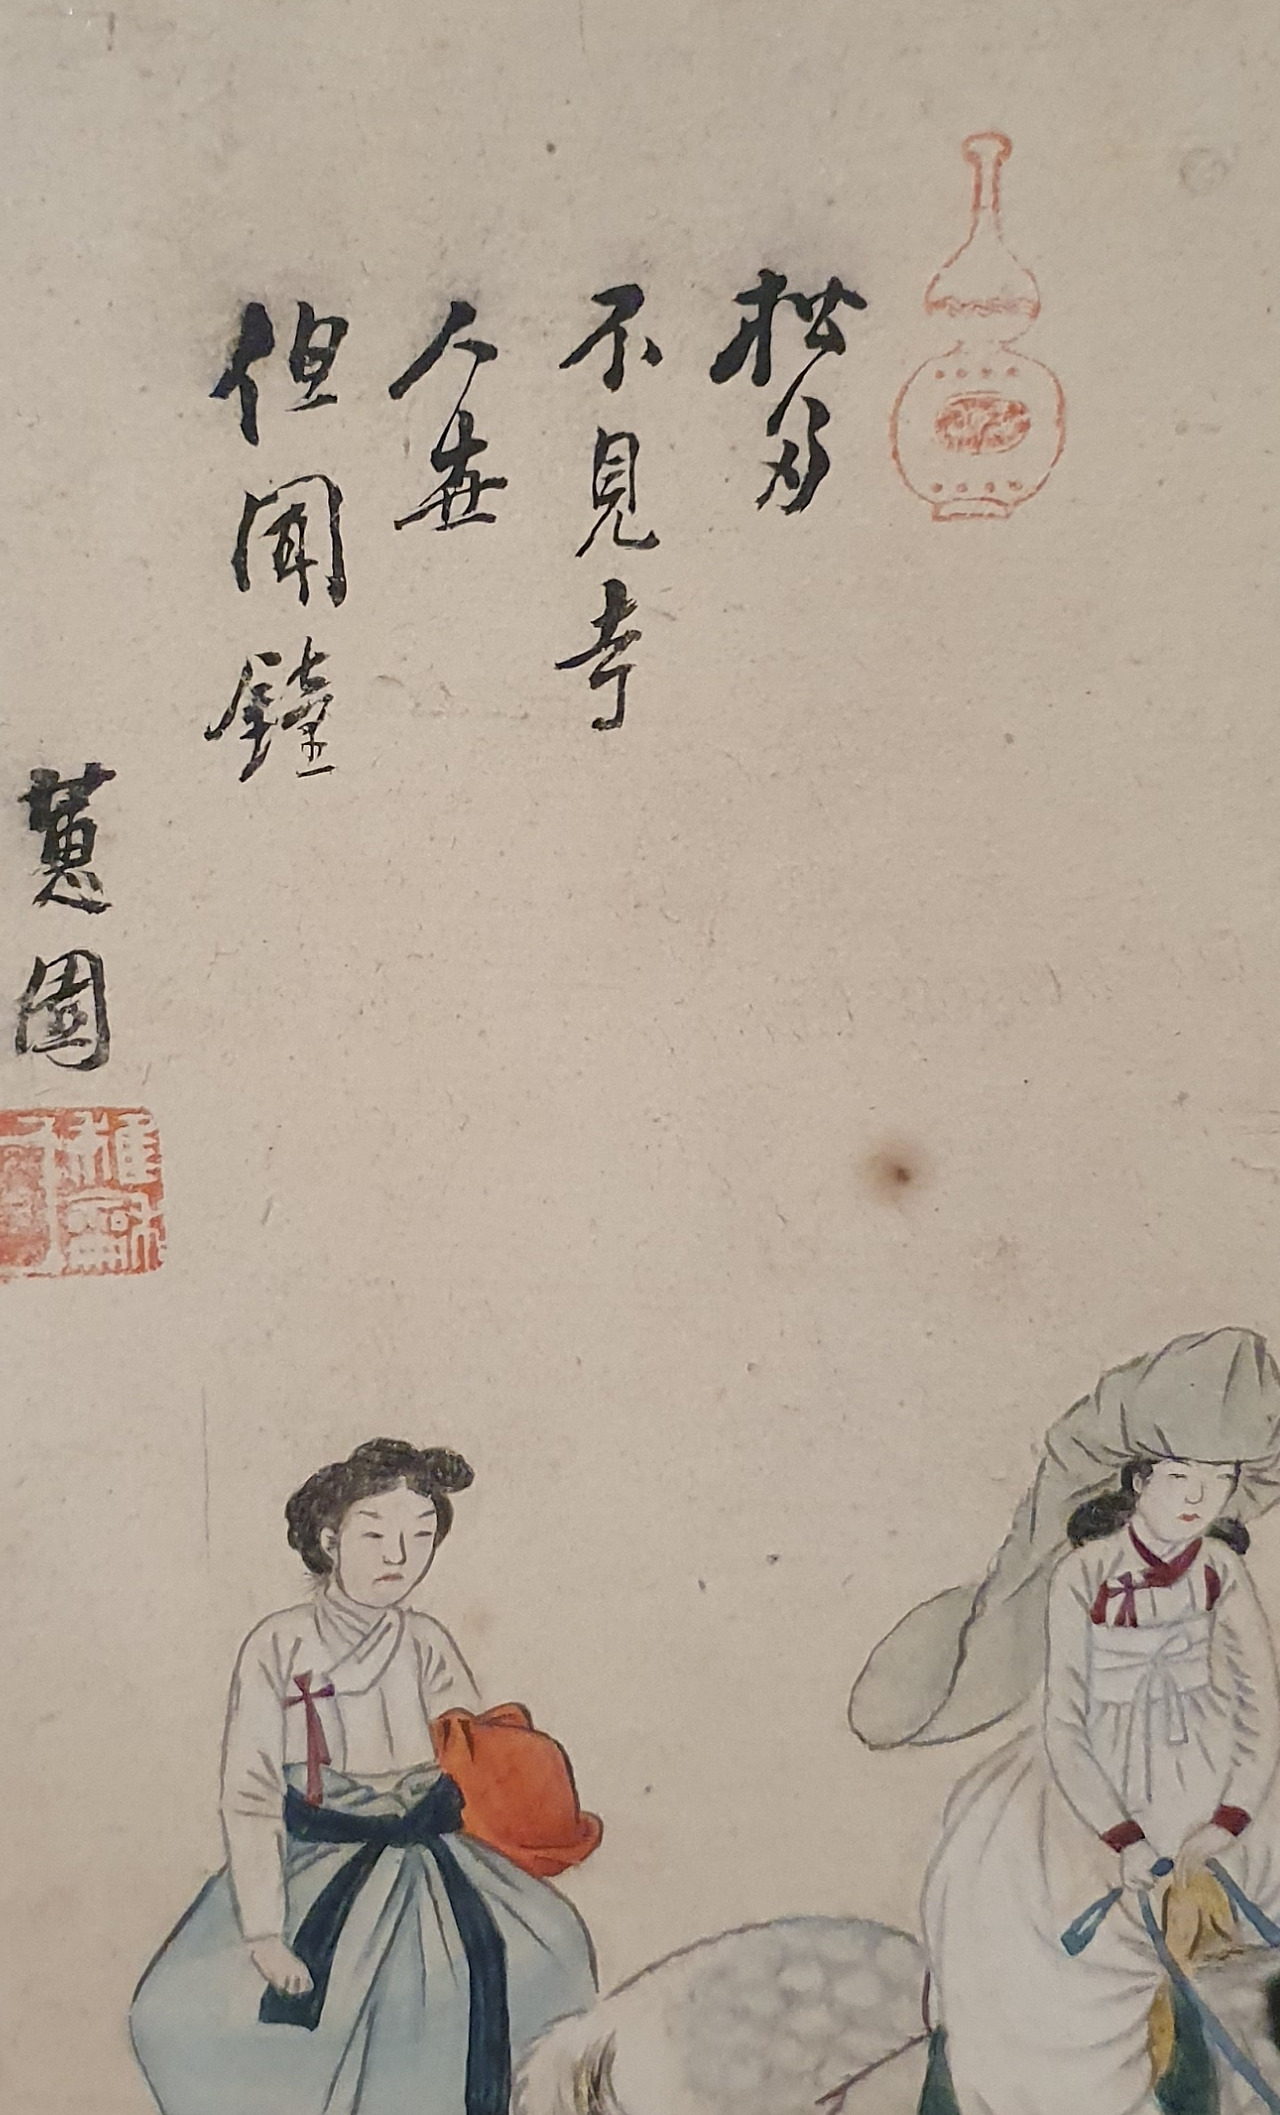 松多
不見寺
人世
但聞鐘
蕙園